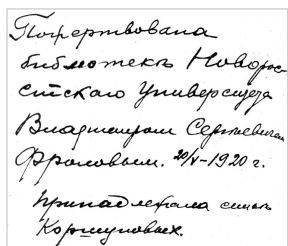 Пожертвована
библиотекѣ Новорос-
сійскаго Университета
Владиміром Сергѣевичем
Фроловым. 20/V-1920 г.
Принадлежала семьѣ
Коршуновых.